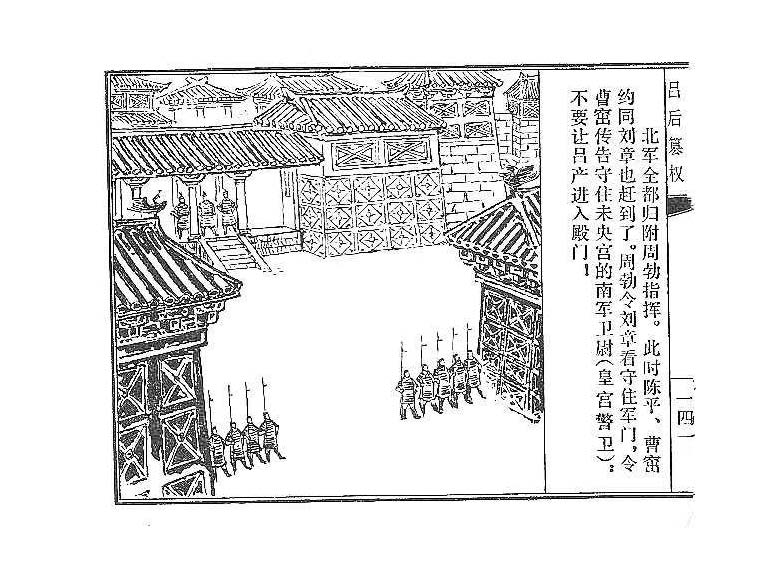 吕后篡权
北军全部归附周勃指挥。此时陈平、曹窋
约同刘章也赶到了。周勃令刘章看守住军门，令
曹窋传告守住未央宫的南军卫尉(皇宫警卫)：
不要让吕产进入殿门！
一四一